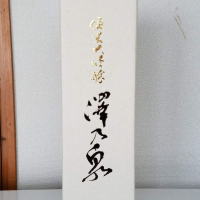 純米大吟醸
澤乃泉